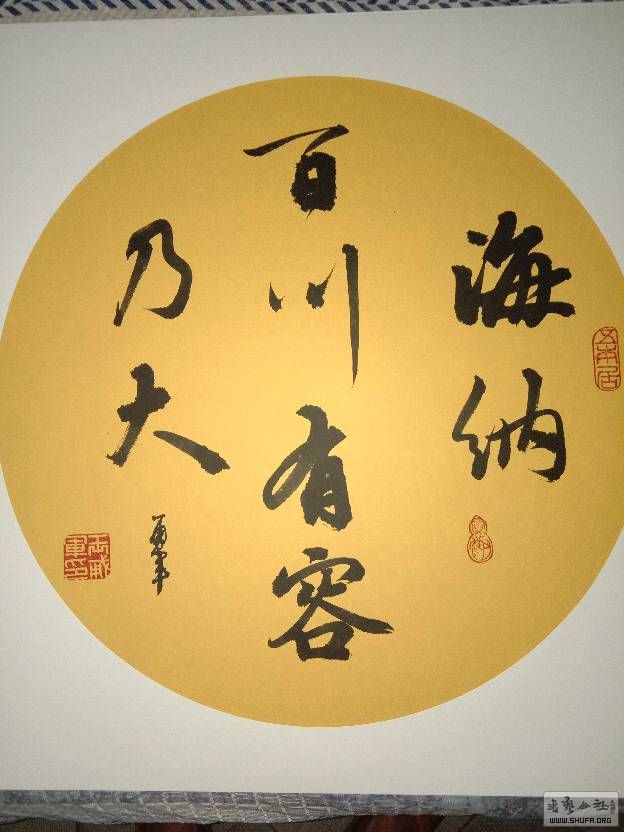 海纳
百川有容
乃大
WWW.SHUFA.ORG